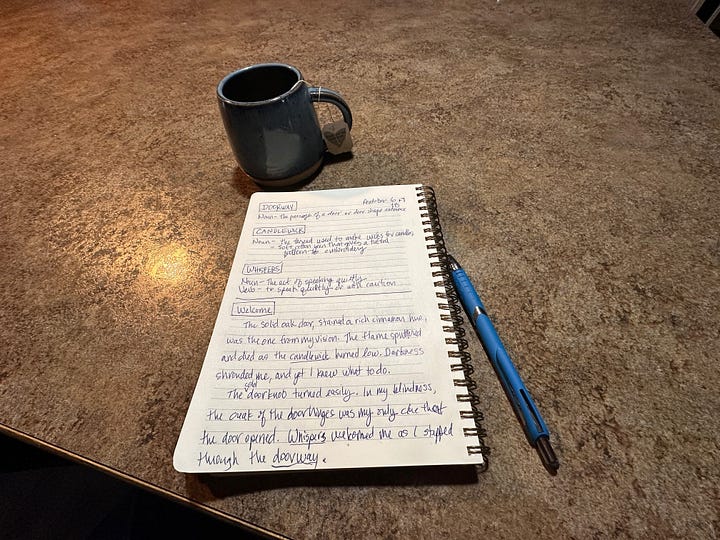 DOORWAY
Noun - The passage of a door or door shape entrance
CANDLEWICK
Noun - the thread used to make wicks for candles,
- soft cotton yarn that gives a tufted
pattern to embroidery
WHISPERS
Noun - The act of speaking quietly
Verb - to speak quietly or with caution
Welcome
The solid oak door, stained a rich cinnamon hue,
was the one from my vision. The flame sputtered
and died as the candlewick burned low. Darkness
shrouded me, and yet I knew what to do.
The gold doorknob turned easily. In my blindness,
the creak of the door hinges was my only clue that
the door opened. Whispers welcomed me as I stepped
through the doorway.